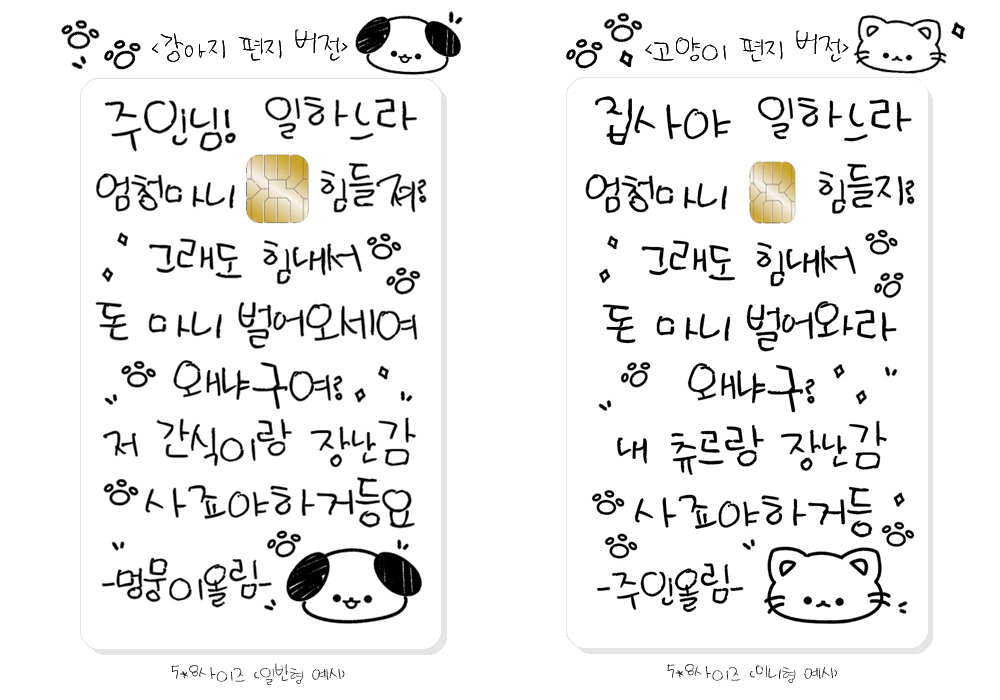 <강아지 편지 버전>
주인님! 일하느라
엄청마니 힘들져?
그래도 힘내서
돈 마니 벌어오세여
왜냐구여?
저 간식이랑 장난감
사죠야하거등요
-멍뭉이올림-
5*8사이즈 <일반형 예시>
<고양이 편지 버전>
집사야 일하느라
엄청마니 힘들지?
그래도 힘내서
돈 마니 벌어와라
왜냐구?
내 츄르랑 장난감
사죠야하거등
-주인올림-
5*8사이즈 <미니형 예시>